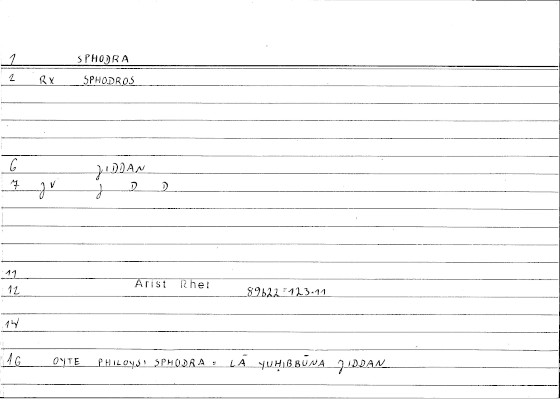 1 SPHODRA
2 RX SPHODROS
6 ȷIDDAN
7 ȷV ȷ D D
11
12 Arist Rhet 89b22=123.11
14
16 OYTE PHILOYSI SPHODRA = LĀ YUḤIBBŪNA ȷIDDAN